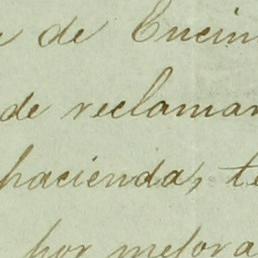 de Encin
de reclamar
hacienda, te
por mejora